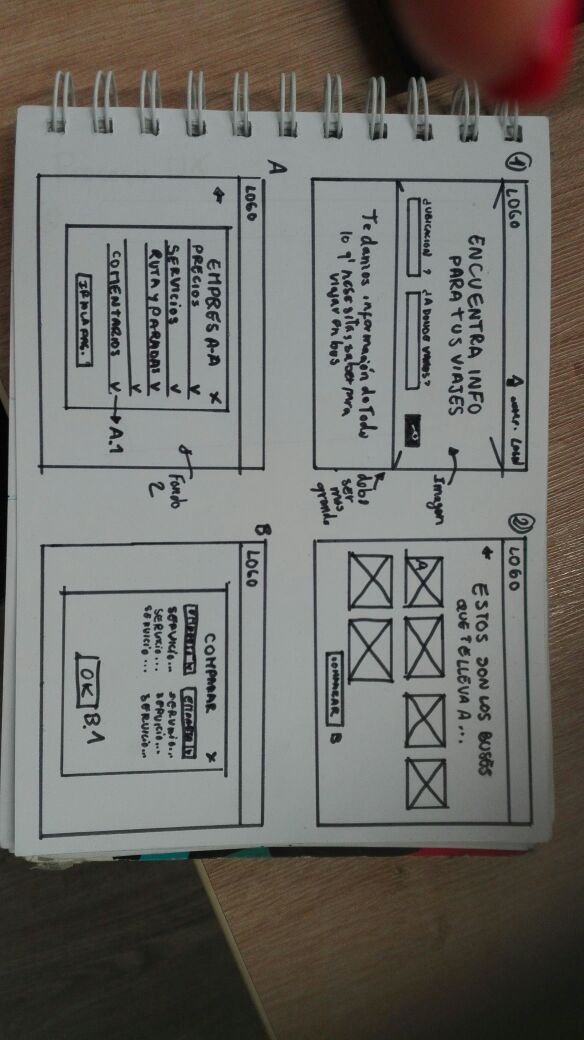 ①
LOGO
ENCUENTRA INFO
PARA TUS VIAJES
¿UBICACION?
¿A DONDE VAMOS?
Imagen
Te damos información de Todo
lo q' necesitas saber para
viajar en bus
debe
ser
mas
grande
②
LOGO
ESTOS SON LOS BUSES
QUE TE LLEVA A...
A
COMPARAR
B
A
LOGO
EMPRESA-A
X
PRECIOS V
SERVICIOS V
RUTA Y PARADAS V
COMENTARIOS V
A.1
IR A LA PAG.
Fondo
2
B
LOGO
COMPARAR
X
SERVICIO... SERVICIO...
SERVICIO... SERVICIO...
SERVICIO... SERVICIO...
OK
B.1